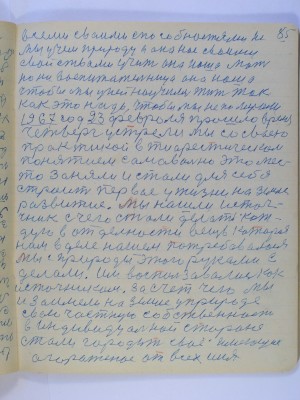 всеми своими способностями не 85
мы учим природу а она нас своими
свойствами учит она наша мать
она воспитательница она наша
чтобы мы у ней научились жить так
как это надо, чтобы мы не
1967 год 23 февраля прошло время
четверг мы со своею
практикой в туристическом
понятием самовольно это мес-
то заняли и стали для себя
строить первое у жизни на
развитие. Мы нашли источ-
ник с чего стали делать каж-
дую в отдельности вещь которая
нам в деле нашем потребовалась
мы с природы этого руками с
делали. Им воспользовались как
источником. За счет чего мы
и заимели на у природе
свою частную собственность
в индивидуальной стороне
стали городить своё имеющее
огораженое от всех них